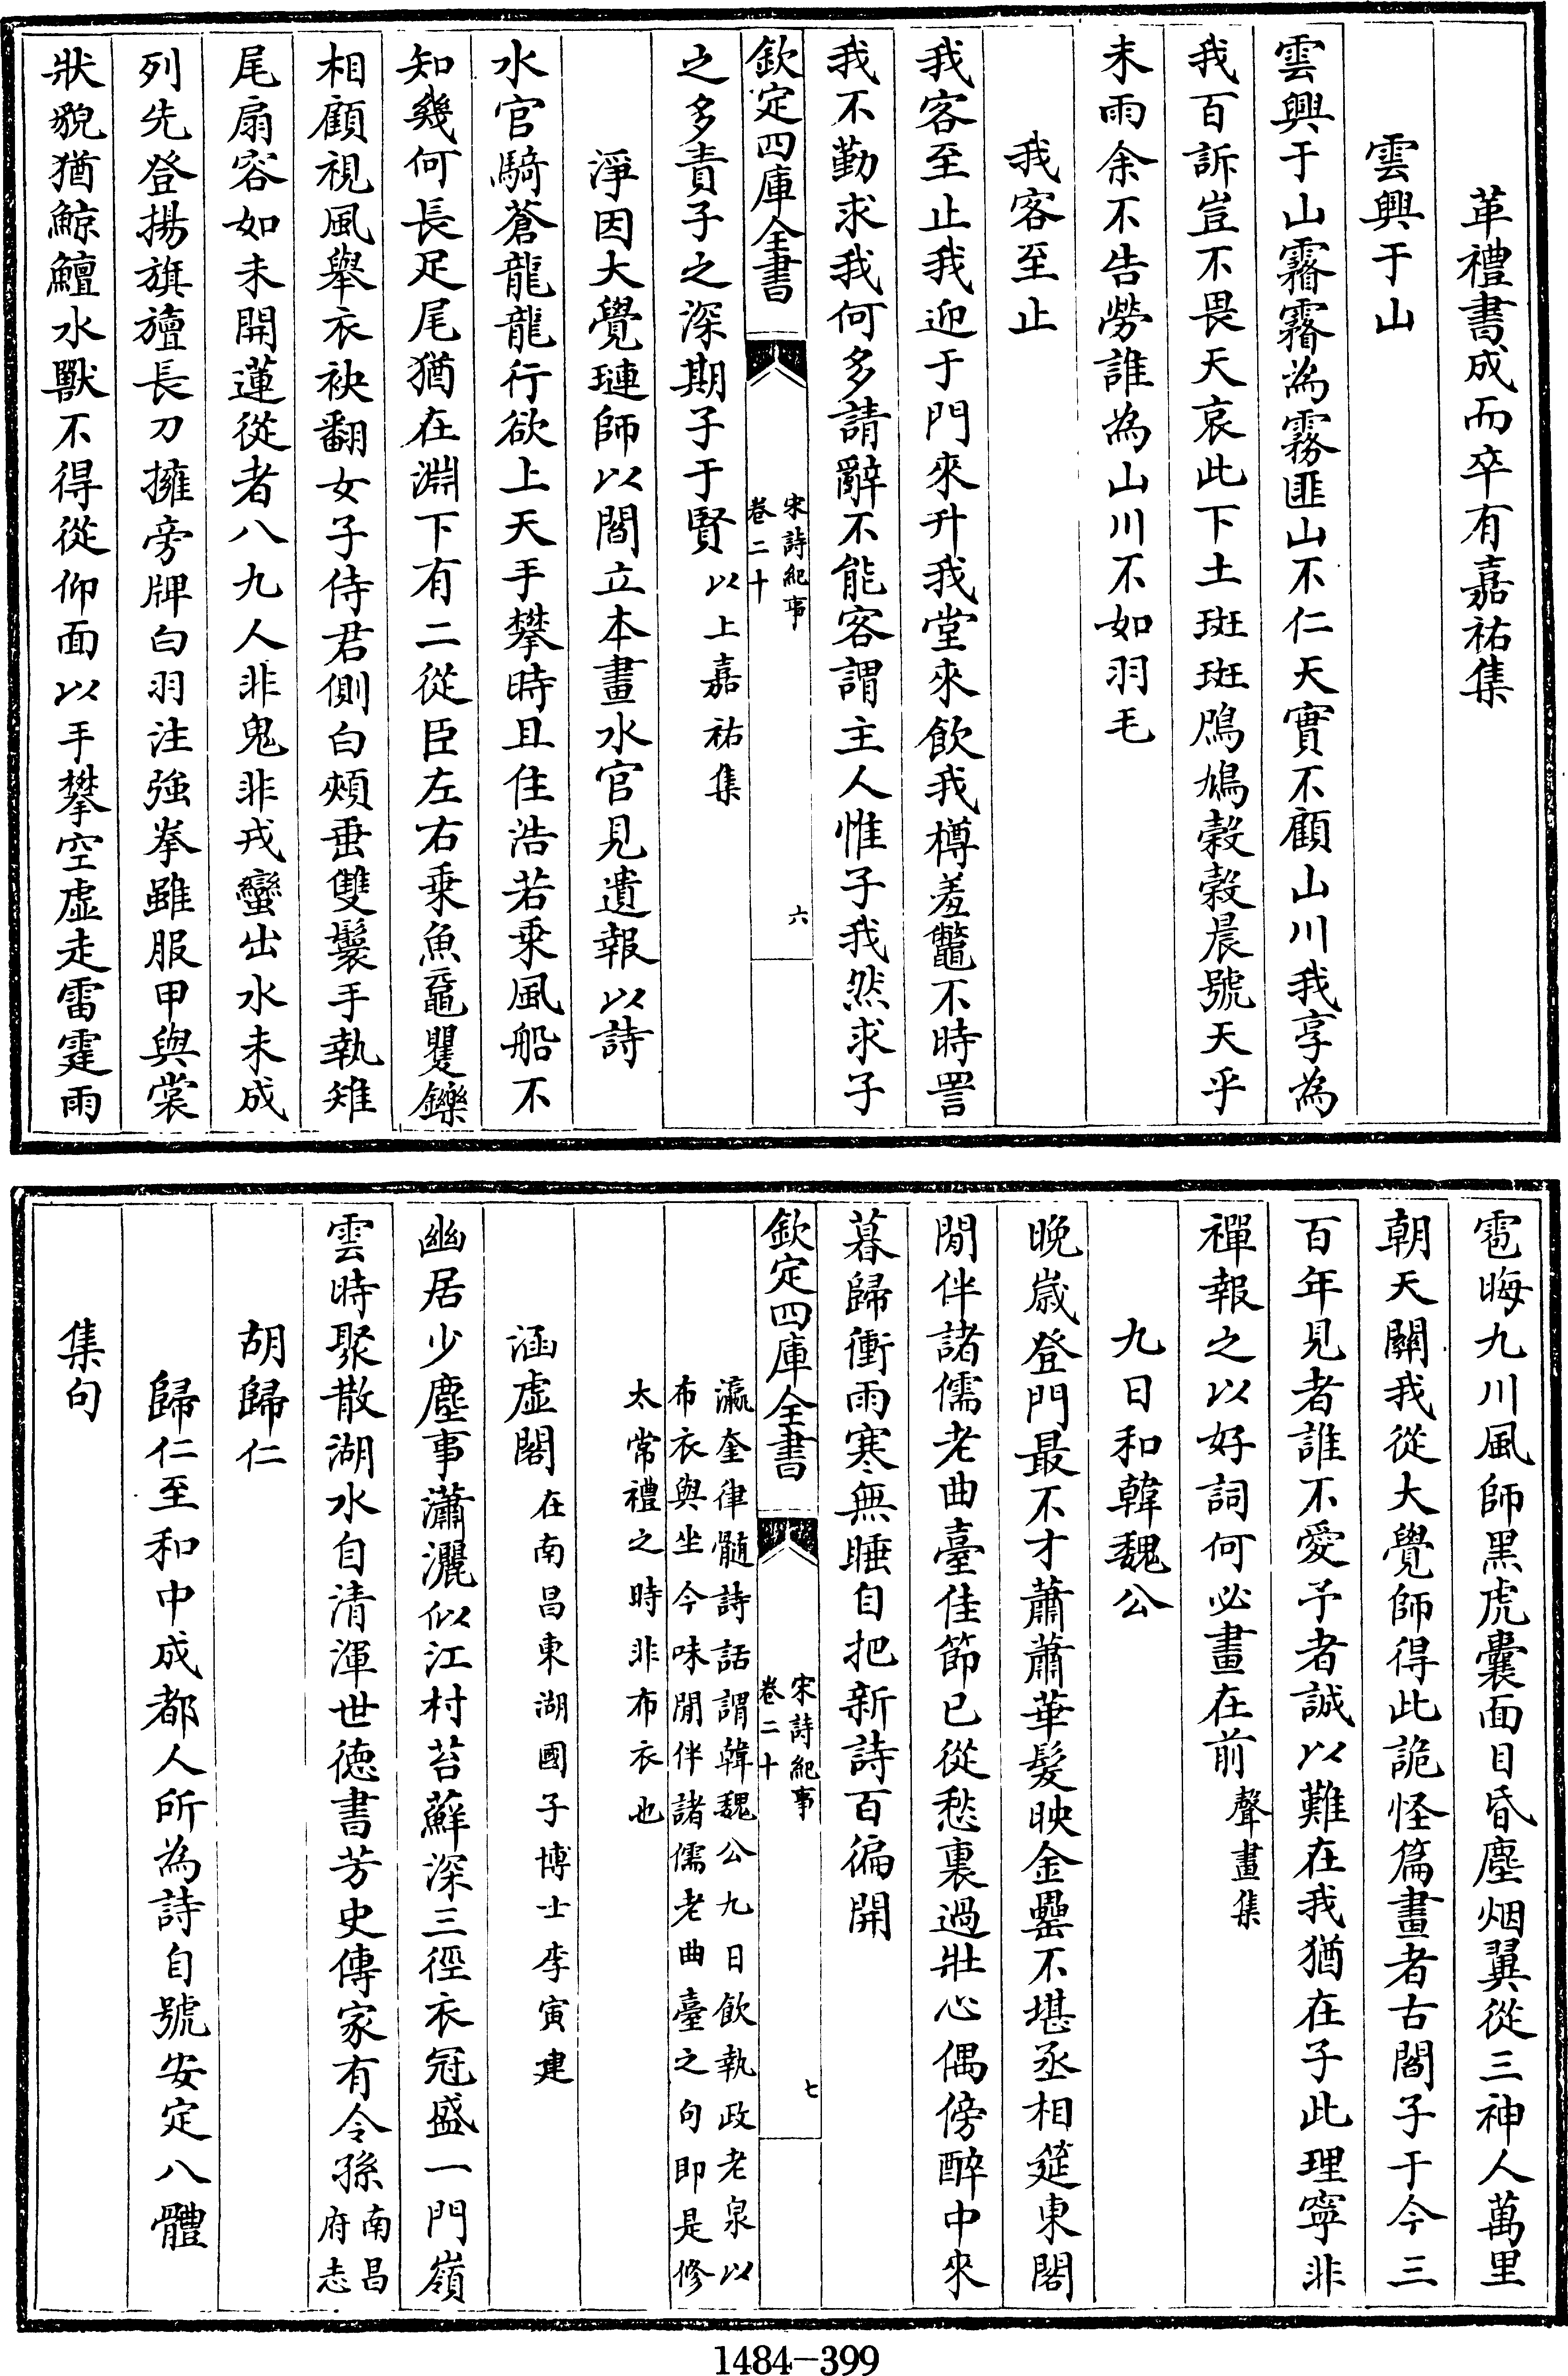 革禮書成而卒有嘉祐集
雲興于山
雲興于山靄靄為霧匪山不仁天實不顧山川我享為
我百訴豈不畏天哀此下土班班鳲鳩穀穀晨號天乎
未雨余不告勞誰為山川不如羽毛
我客至止
我客至止我迎于門來升我堂來飲我樽羞鼈不時詈
我不勤求我何多請辭不能客謂主人惟子我然求子
欽定四庫全書
宋詩紀事
卷二十
六
之多責子之深期子于賢以上嘉祐集
淨因大覺璉師以閻立本畫水官見遺報以詩
水官騎蒼龍龍行欲上天手攀時且住浩若乘風船不
知幾何長足尾猶在淵下有二從臣左右乘魚黿矍鑠
相顧視風舉衣袂翻女子侍君側白頰垂雙鬟手執雉
尾扇容如未開蓮從者八九人非鬼非戎蠻出水未成
列先登揚旗旜長刀擁旁牌白羽注強拳雖服甲與裳
狀貌猶鯨鱣水獸不得從仰面以手攀空虛走雷霆雨
雹晦九川風師黑虎囊面目昏塵烟翼從三神人萬里
朝天關我從大覺師得此詭怪篇畫者古閻子于今三
百年見者誰不愛予者誠以難在我猶在子此理寧非
禪報之以好詞何必畫在前聲畫集
九日和韓魏公
晚歲登門最不才蕭蕭華髮映金罍不堪丞相筵東閣
閒伴諸儒老曲臺佳節已從愁裏過壯心偶傍醉中來
暮歸衝雨寒無睡自把新詩百徧開
欽定四庫全書
宋詩紀事
卷二十
七
瀛奎律髓詩話謂韓魏公九日飲執政老泉以
布衣與坐今味閒伴諸儒老曲臺之句即是修
太常禮之時非布衣也
涵虛閣在南昌東湖國子博士李寅建
幽居少塵事瀟灑似江村苔蘚深三徑衣冠盛一門嶺
雲時聚散湖水自清渾世德書芳史傳家有令孫南昌
府志
胡歸仁
歸仁至和中成都人所為詩自號安定八體
集句
1484-399